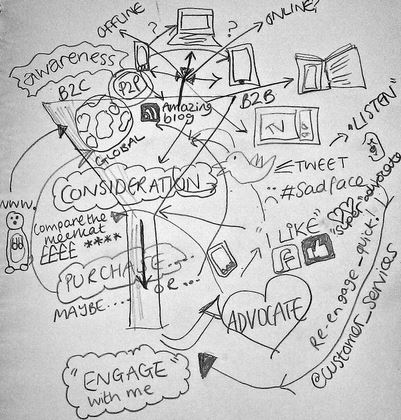 OFFLINE
?
?
ONLINE?
awareness
B2C
P2P
Amazing
blog
B2B
TV
GLOBAL
"LISTEN"
CONSIDERATION
TWEET
#Sadface
WWW.
Compare the
meerkat
££££ ****
"LIKE"
"super" advocate
f
PURCHASE....
MAYBE.... OR...
ADVOCATE
Re-engage - quick!
@customer_services
"ENGAGE"
with me